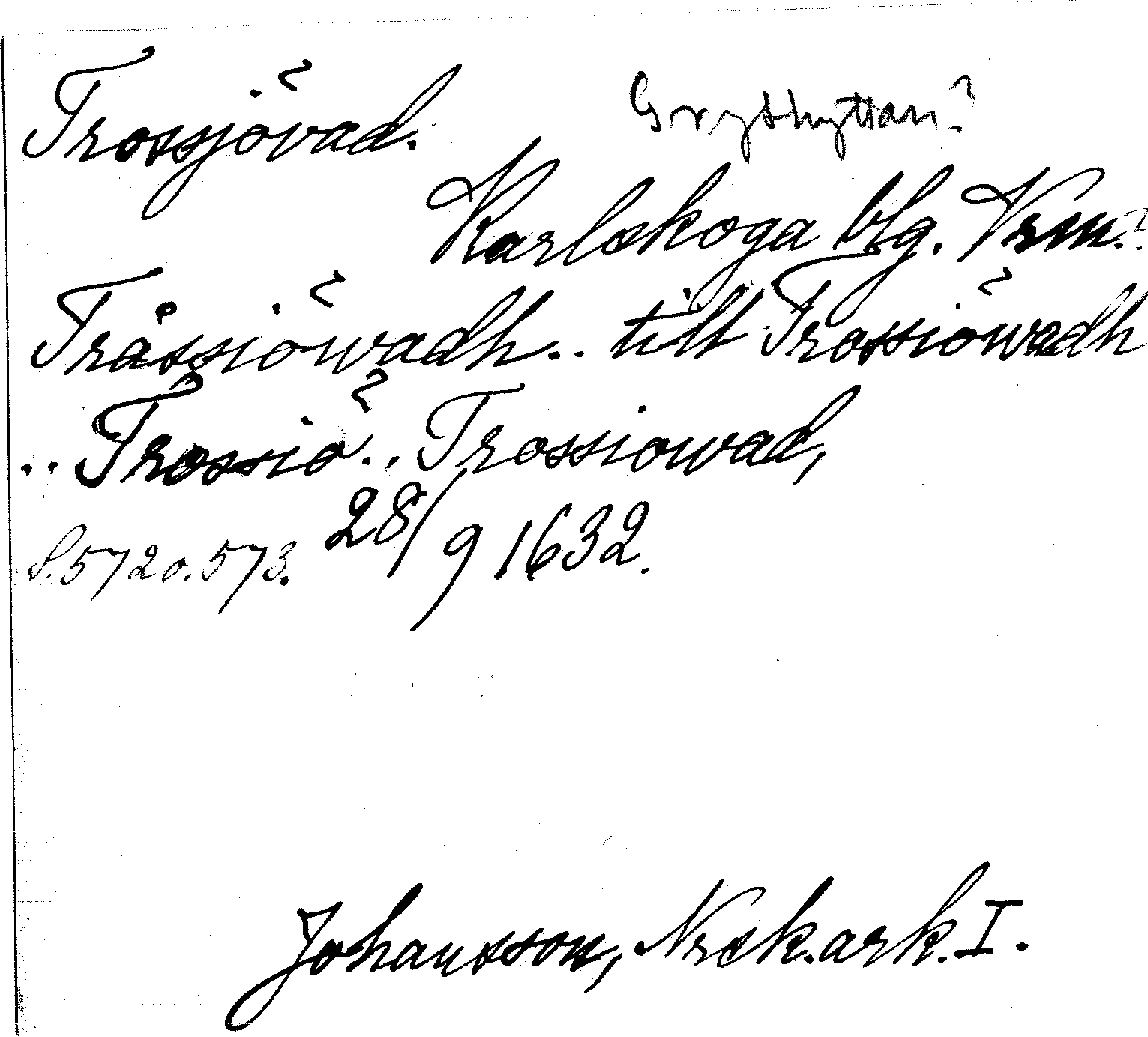 Trossjövad. Grythyttan?
Karlskoga blg. Vrm.?
Tråssiöwadh.. till Trossiöwadh
.. Trossiö.. Trossiowad,
S. 572 o. 573. 28/9 1632.
Johansson, Nrckark. I.